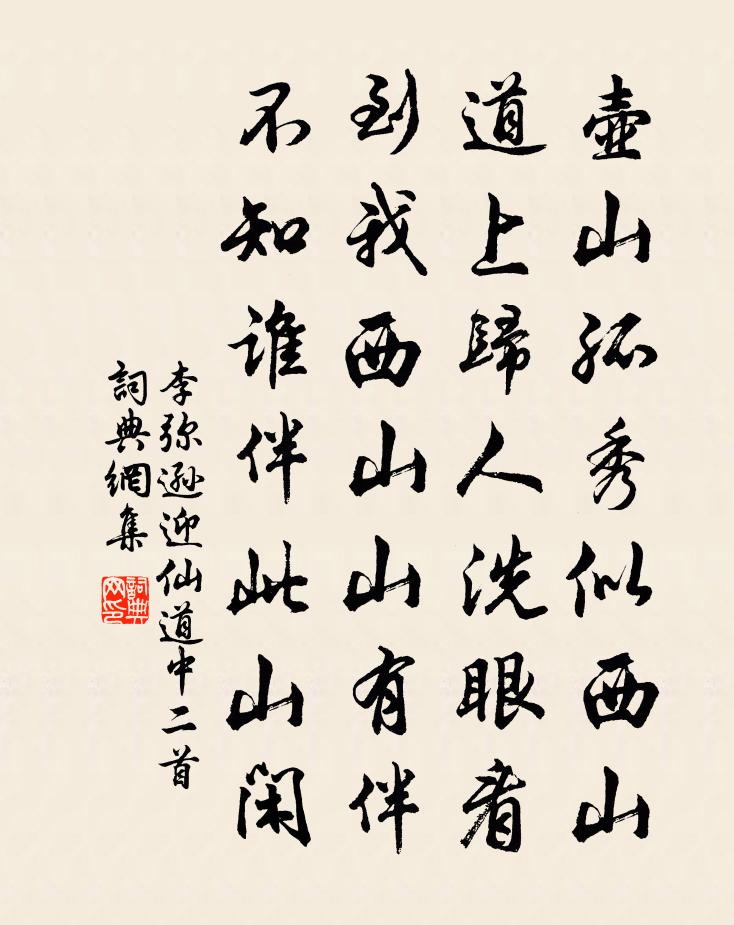 壺山孤秀似西山
道上歸人洗眼看
到我西山山有伴
不知誰伴此山閑
李弥遜迎仙道中二首
詞典網集
詞典網印